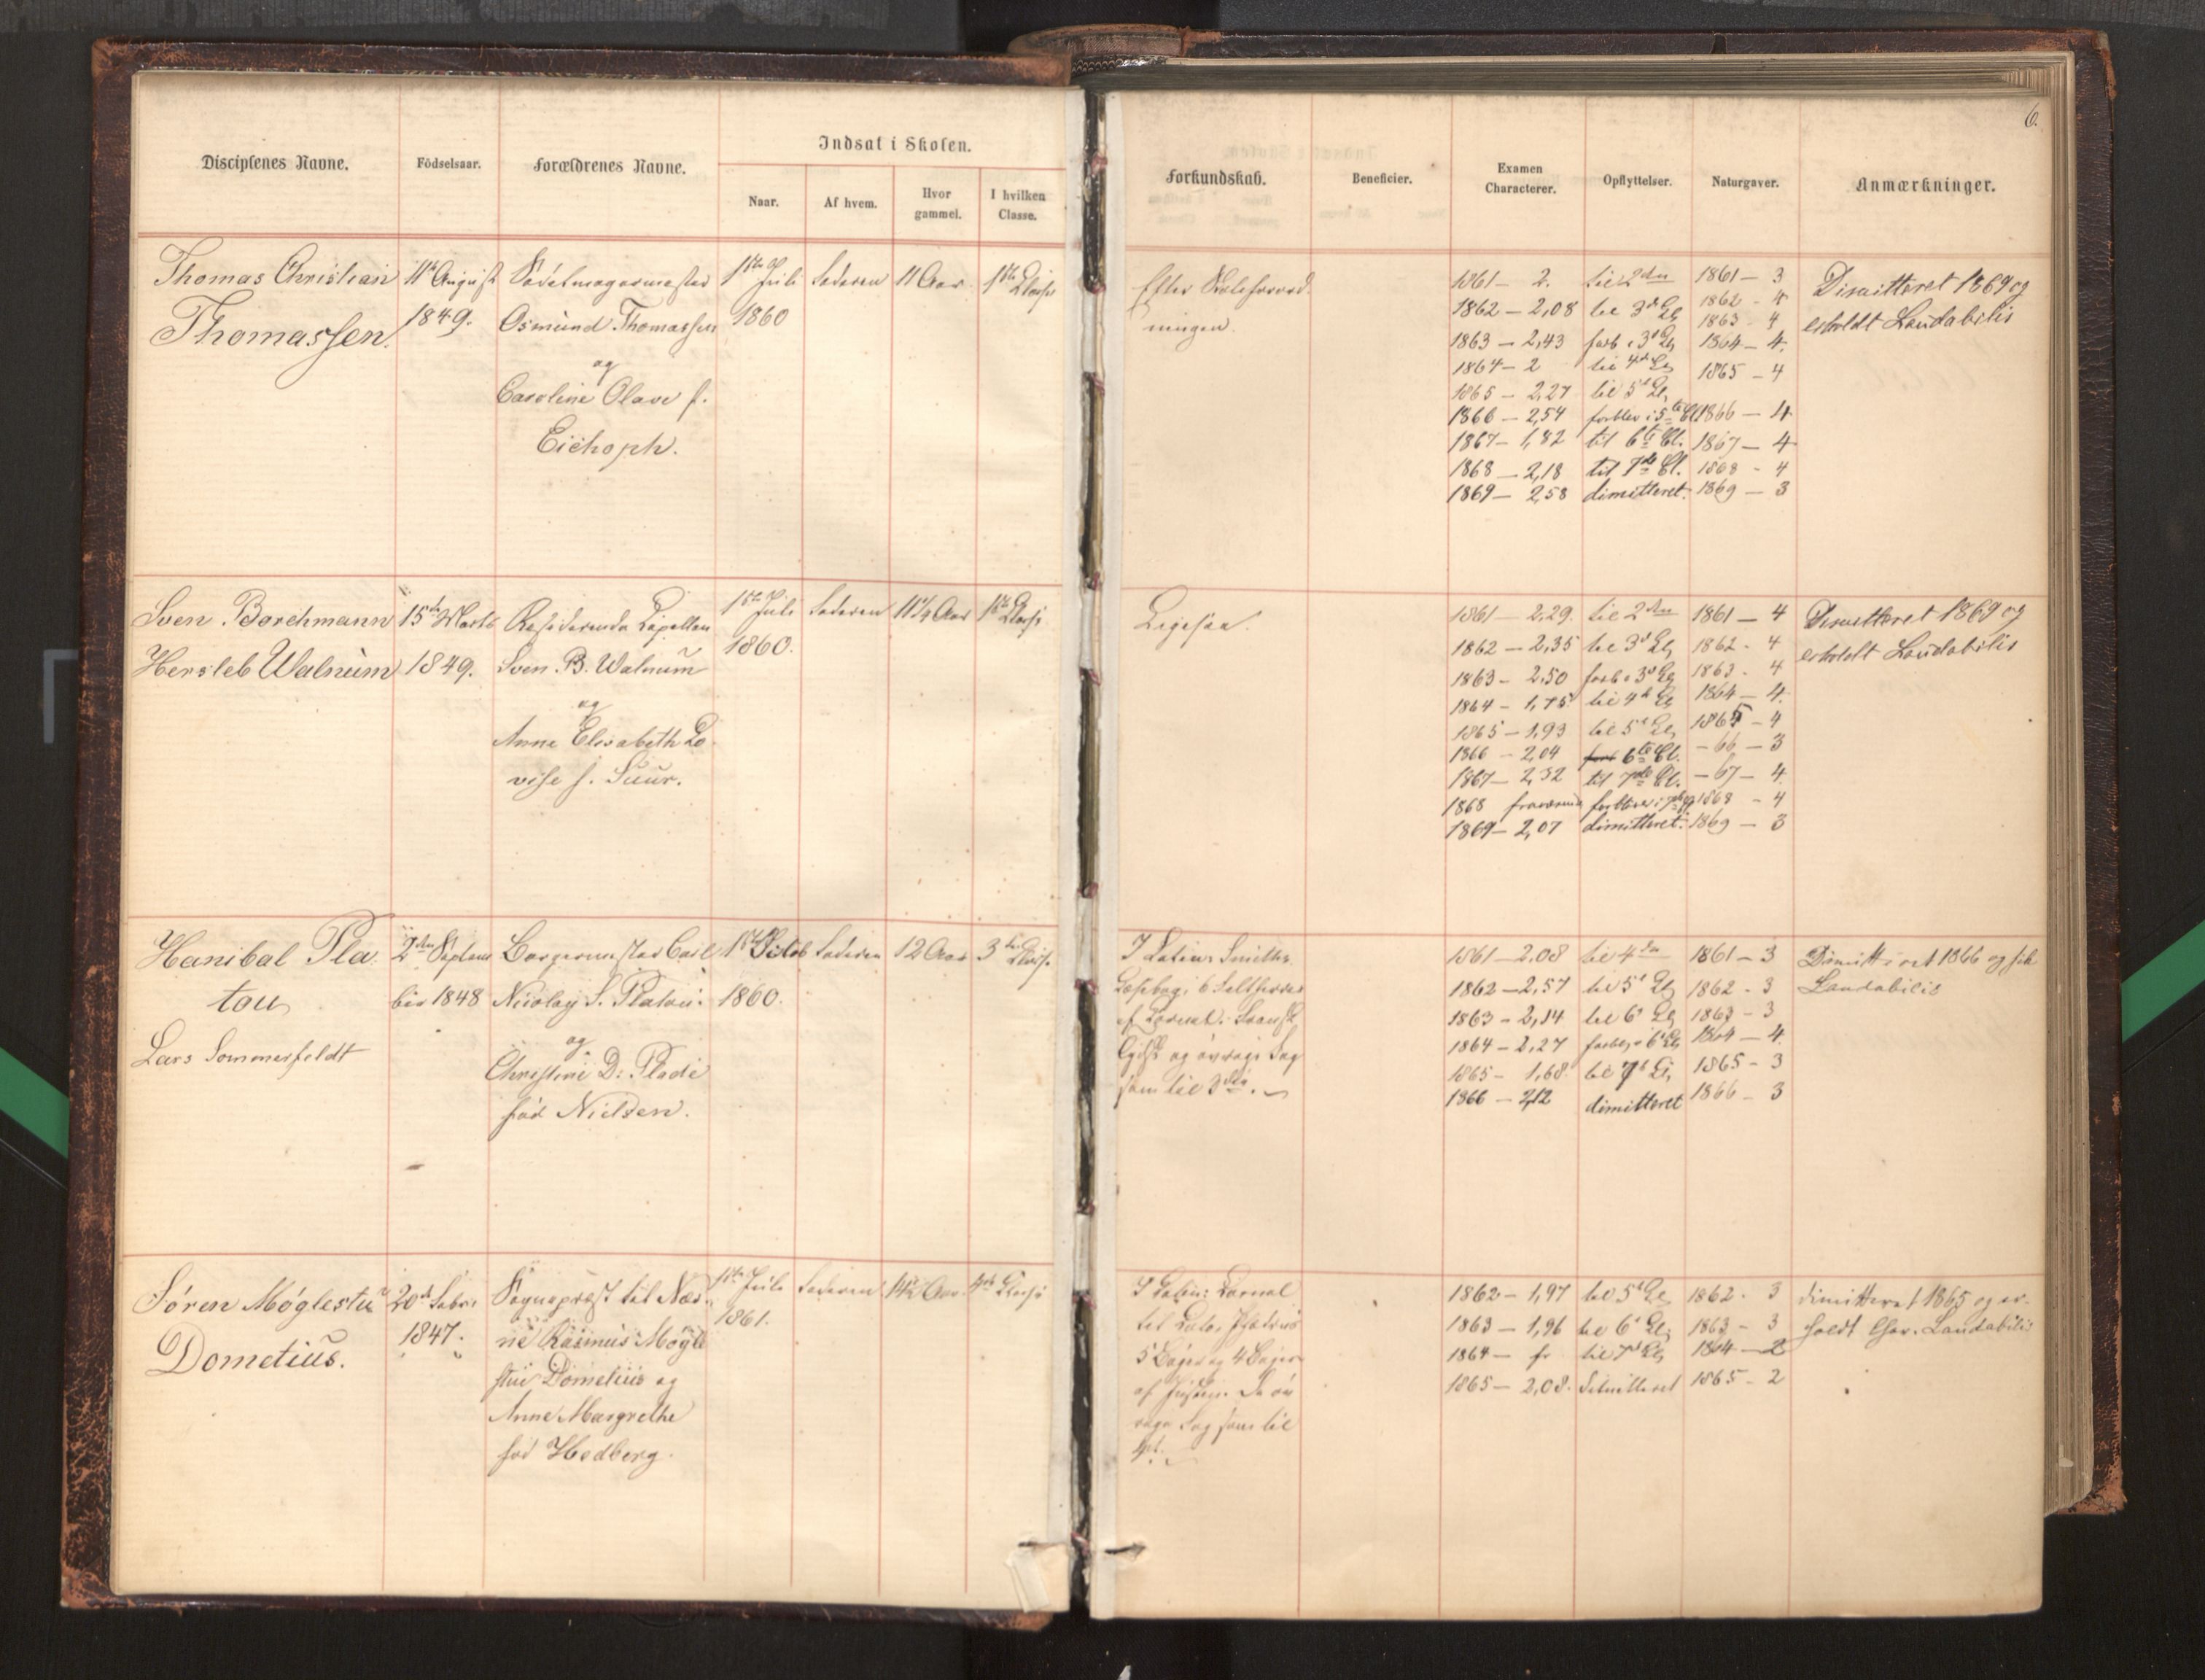 6.
Disciplenes Navne.
Födselsaar.
Forældrenes Navne.
Indsat i Skolen.
Naar.
Af hvem.
Hvor
gammel.
I hvilken
Classe.
Forkundskab.
Beneficier.
Examen
Characterer.
Opflyttelser.
Naturgaver.
Anmærkninger.
Thomas Christian
Thomassen.
11te August
1849.
Osmund Thomassen
og
Caroline Olave f.
Eickoph.
1ste Juli
1860
Faderen
11 Aar
1ste Classe
Efter Skoleforord-
ningen.
1861 – 2.
1862 – 2,08
1863 – 2,43
1864 – 2
1865 – 2,27
1866 – 2,54
1867 – 1,82
1868 – 2,18
1869 – 2,58
til 2den
til 3d Cl
forb. i 3d Cl
til 4de Cl
til 5t Cl,
forblev i 5te Cl
til 6te Cl.
til 7de Cl.
dimitteret.
1861 – 3
1862 – 4
1863 – 4
1864 – 4.
1865 – 4
1866 – 4
1867 – 4
1868 – 4
1869 – 3
Dimitteret 1869 og
erholdt Laudabilis
Sven Borchmann
Hersleb Walnum
15de Marts
1849.
Residerende Capellan
Sven B. Walnum
og
Anne Elisabeth Lo
vise f. Suur.
1ste Juli
1860.
Faderen
11 1/4 Aar
1ste Classe
Ligesaa.
1861 – 2,29.
1862 – 2,35
1863 – 2,50
1864 – 1,75.
1865 – 1,93
1866 – 2,04
1867 – 2,32
1868 fraværende
1869 – 2,07
til 2den
til 3d Cl
forb. i 3d Cl
til 4de Cl
til 5t Cl,
6te Cl.
til 7de Cl.
forblev i 7de Cl
dimitteret.
1861 – 4
1862 – 4
1863 – 4
1864 – 4.
1865 – 4
– 66 – 3
– 67 – 4
1868 – 4
1869 – 3
Dimitteret 1869 og
erholdt Laudabilis
Hanibal Pla-
tou
Lars Sommerfeldt
2den Septem
ber 1848
Borgermester Carl
Nicolay S. Platou.
og
Christine D. Plade
fød Nielsen.
1ste Octob
1860.
Faderen
12 Aar
3die Classe
I Latin: Smiths
Læsebog,
og øvrige Fag
som til 3die.
1861 – 2,08
1862 – 2,57
1863 – 2,14
1864 – 2,27
1865 – 1,68.
1866 – 2,12
til 4de
til 5t Cl
til 6t Cl
forb. i 6t Cl
til 7d Cl,
dimitteret
1861 – 3
1862 – 3
1863 – 3
1864 – 4.
1865 – 3
1866 – 3
Dimitteret 1866 og fik
Laudabilis
Søren Møglestue
Dometius.
20de Febr.
1847.
Sognepræst til Næs-
ne Rasmus Møgle
stue Dometius og
Anne Margrethe
fød Hedberg.
1ste Juli
1861.
Faderen
14 1/2 Aar
4de Classe
I Latin: Cornel
5 Bøger og 4 Bøger
af Justin. De øv
rige Fag som til
4de.
1862 – 1,97
1863 – 1,96
1864 – fr
1865 – 2,08.
til 5t Cl
til 6t Cl,
til 7d Cl,
dimitteret
1862 – 3
1863 – 3
1864 – 2
1865 – 2
dimitteret 1865 og er-
holdt Char. Laudabilis